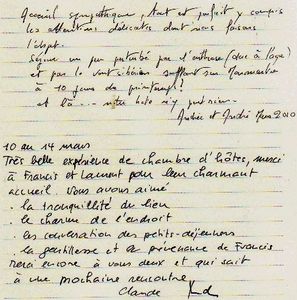 Accueil sympathique, tout est parfait y compris
les attentions délicates dont nous faisons
l'objet.
Séjour un peu perturbé par l'arthrose (due à l'âge)
et par le vent sibérien soufflant sur Noirmoutier
à 10 jours du printemps !
et là.... notre hôte n'y peut rien.
Andrée et André Mars 2010
10 au 14 mars
Très belle expérience de chambre d'hôtes, merci
à Francis et Laurent pour leur charmant
accueil. Vous avons aimé
. la tranquillité du lieu
. le charme de l'endroit
. les conversations des petits-déjeuners
. la gentillesse et la prévenance de Francis
Merci encore à vous deux et qui sait
à une prochaine rencontre
Claude